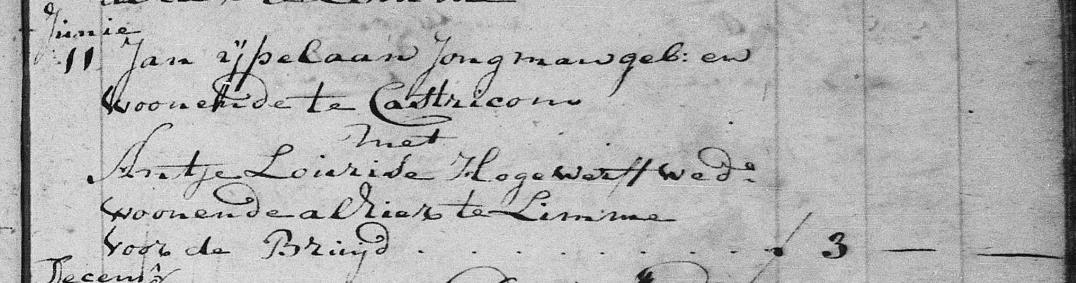 Junie
11 Jan ijpelaan Jongman geb: en
woonende te Castricom
met
Antje Louride Hogewerff wede:
woonende alhier te Limme
voor de Bruyd . . . . . . . . . ƒ 3 — —
Decemr